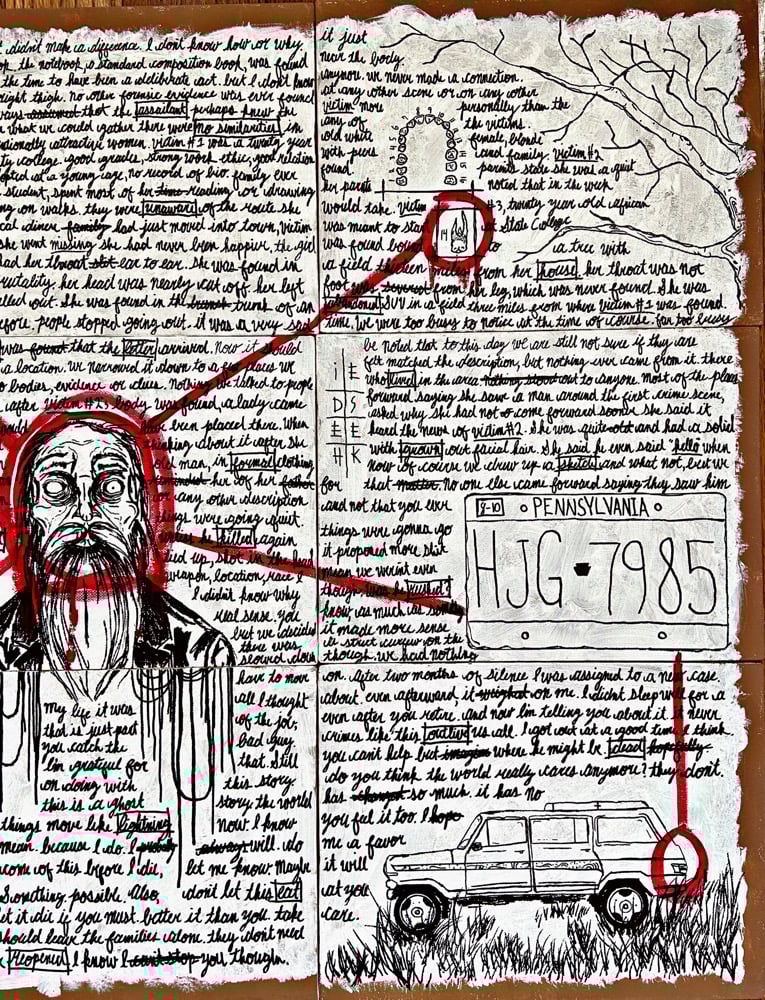 didn't make a difference. I don't know how or why.
the notebook, a standard composition book, was found
the time to have been a deliberate act. but I don't know
right thigh. no other forensic evidence was ever found
that the assailant perhaps knew the
what we could gather there were no similarities in
attractive women. victim #1 was a twenty year
college. good grades, strong work ethic, good relation
at a young age, no record of bio family ever
student, spent most of her time reading or drawing
on walks. they were unaware of the route she
diner family had just moved into town, victim
she went missing she had never been happier. the girl
had her throat slit ear to ear. She was found in
brutality. her head was nearly cut off her left
out. She was found in the trunk of an
before people stopped going out. it was a very sad
it just
near the body.
anymore. we never made a connection.
at any other scene or on any other
victim more personally than the
any of the victims.
old white female, blonde
with piers and family. victim #2
found parents state she was a quiet
her parents noted that in the week
would take. Victim #3, twenty year old african
was meant to start at State College
14
was found bound to a tree with
a field thirteen miles from her house. her throat was not
foot was severed from her leg, which was never found. She was
abandoned SUV in a field three miles from where victim #1 was found.
time. We were too busy to notice at the time of course. far too busy
was found that the letter arrived. Now it should
a location. we narrowed it down to a few places we
bodies, evidence or clues. Nothing. We talked to people
after victim #2's body was found, a lady came
have been placed there. When
thinking about it after she
old man, in formal clothing
her of her father
or any other description
things were going quiet.
he killed again
up, shot in the head
weapon, location, race I
I didn't know why
real sense. you
but we decided
there was
slowed down
be noted that to this day we are still not sure if they are
felt matched the description, but nothing ever came from it. there
who lived in the area nothing stood out to anyone. most of the places
forward saying she saw a man around the first crime scene,
asked why she had not come forward sooner she said it
heard the news of victim #2. She was quite old and had a solid
with grown out facial hair. She said he even said "hello" when
now of course we drew up a sketch and what not, but we
for that matter. no one else came forward saying they saw him
i E
D S
E E
H K
and not that you ever
things were gonna go
it proposed more shit
mean we weren't even
though, was he rushed?
know, as much as
it made more sense
a strict curfew on the
though. we had nothing
8-10 PENNSYLVANIA
HJG 7985
have to move
all I thought
of the job.
bad guy
that. Still
this story.
story the world
now. I know
my life it was
that is just part
you catch the
I'm grateful for
on doing with
this is a ghost
things move like lightning
mean. because I do. I probably always will. do
come of this before I die, let me know. Maybe
Something possible. Also, don't let this eat
let it die if you must. better it than you. take
should leave the families alone. they don't need
reopened I know I can't stop you though.
on. after two months of silence I was assigned to a new case.
about. even afterward, it weighed on me. I didn't sleep well for a
even after you retire. and now I'm telling you about it. it never
crimes like this outlive us all. I got out at a good time I think.
you can't help but imagine where he might be dead hopefully.
do you think the world really cares anymore? they don't.
has changed so much. it has no
you feel it too. I hope
me a favor
it will
at you
care.